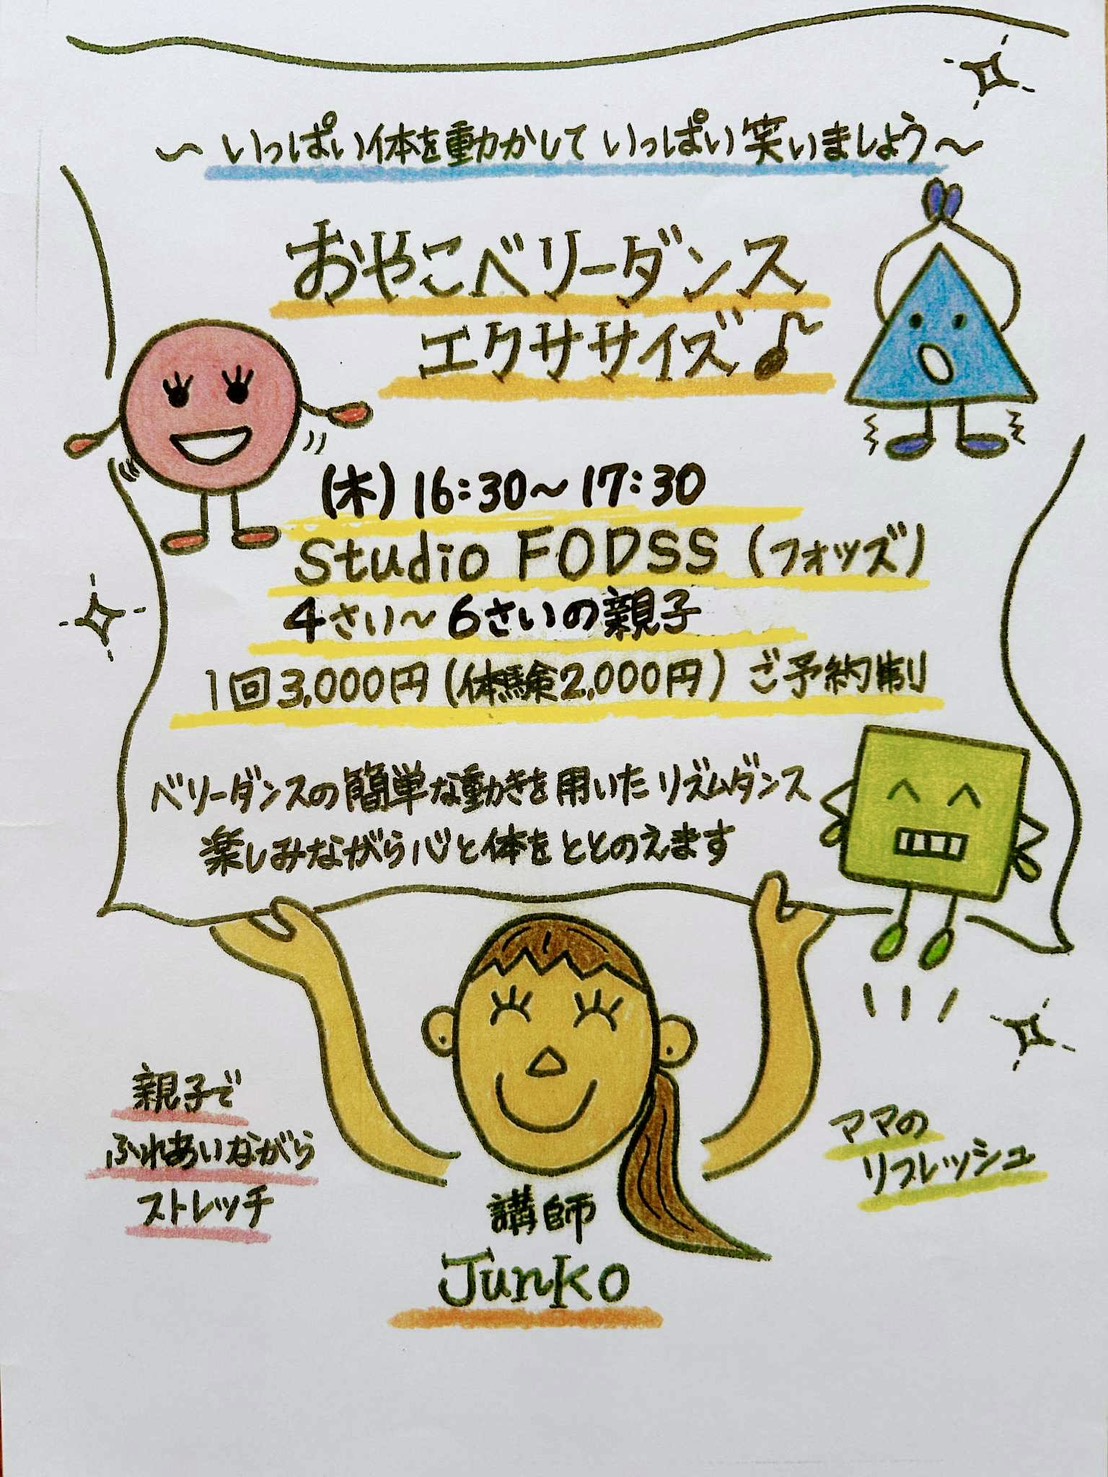 ～いっぱい体を動かして いっぱい笑いましょう～
おやこベリーダンス
エクササイズ♪
(木) 16:30～17:30
Studio FODSS (フォッズ)
4さい～6さいの親子
1回3,000円(体験2,000円) ご予約制
ベリーダンスの簡単な動きを用いたリズムダンス
楽しみながら心と体をととのえます
親子で
ふれあいながら
ストレッチ
ママの
リフレッシュ
講師
Junko